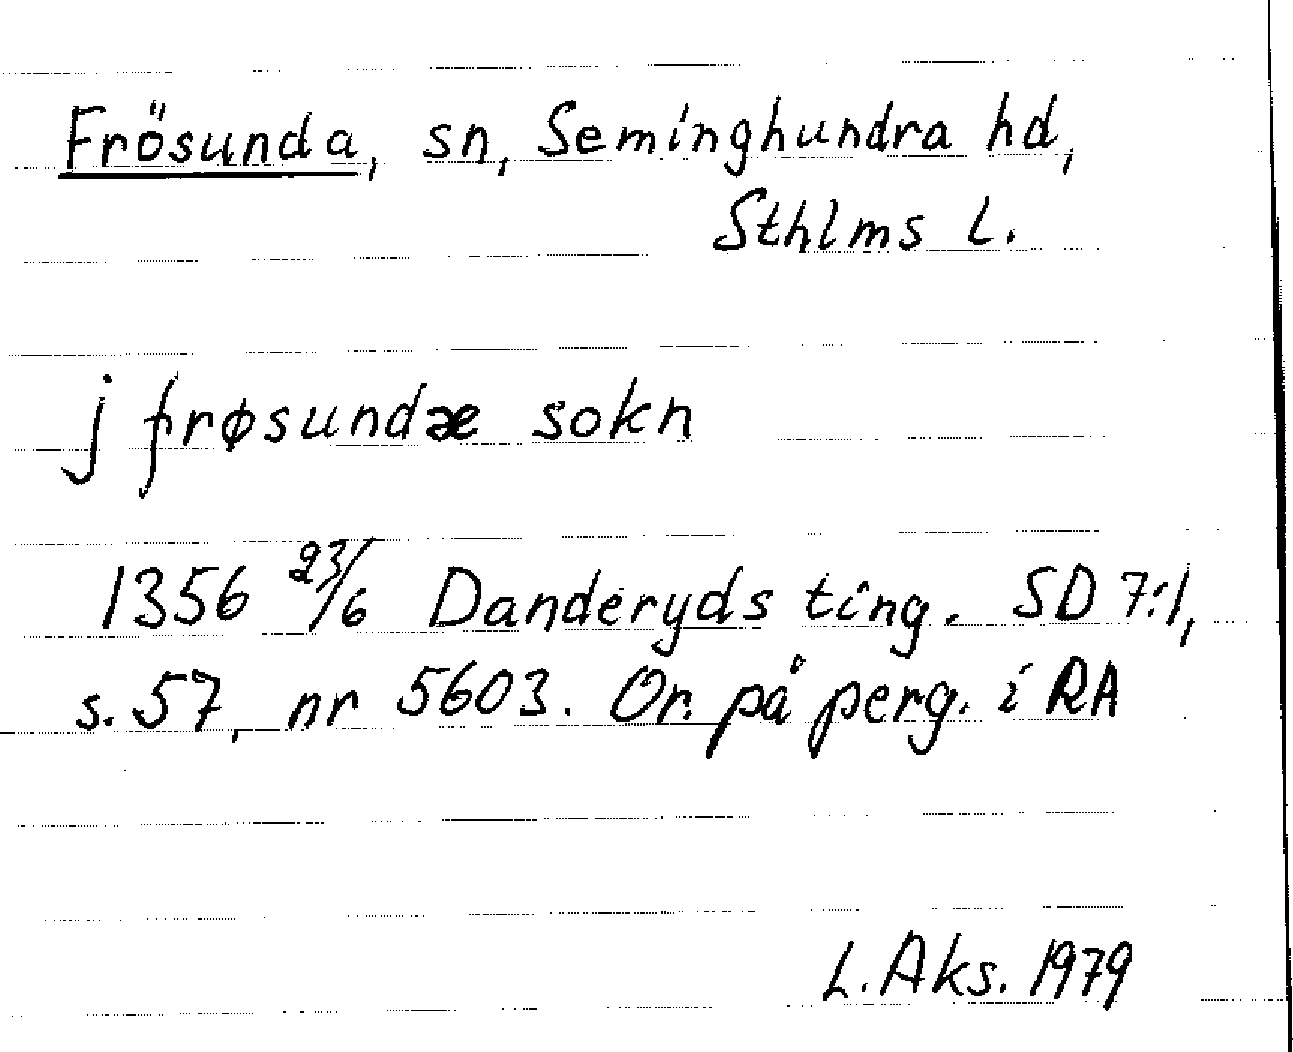 Frösunda, sn, Seminghundra hd,
Sthlms l.
j frøsundæ sokn
1356 23/6 Danderyds ting. SD 7:1,
s. 57, nr 5603. Or. på perg. i RA
L. Aks. 1979